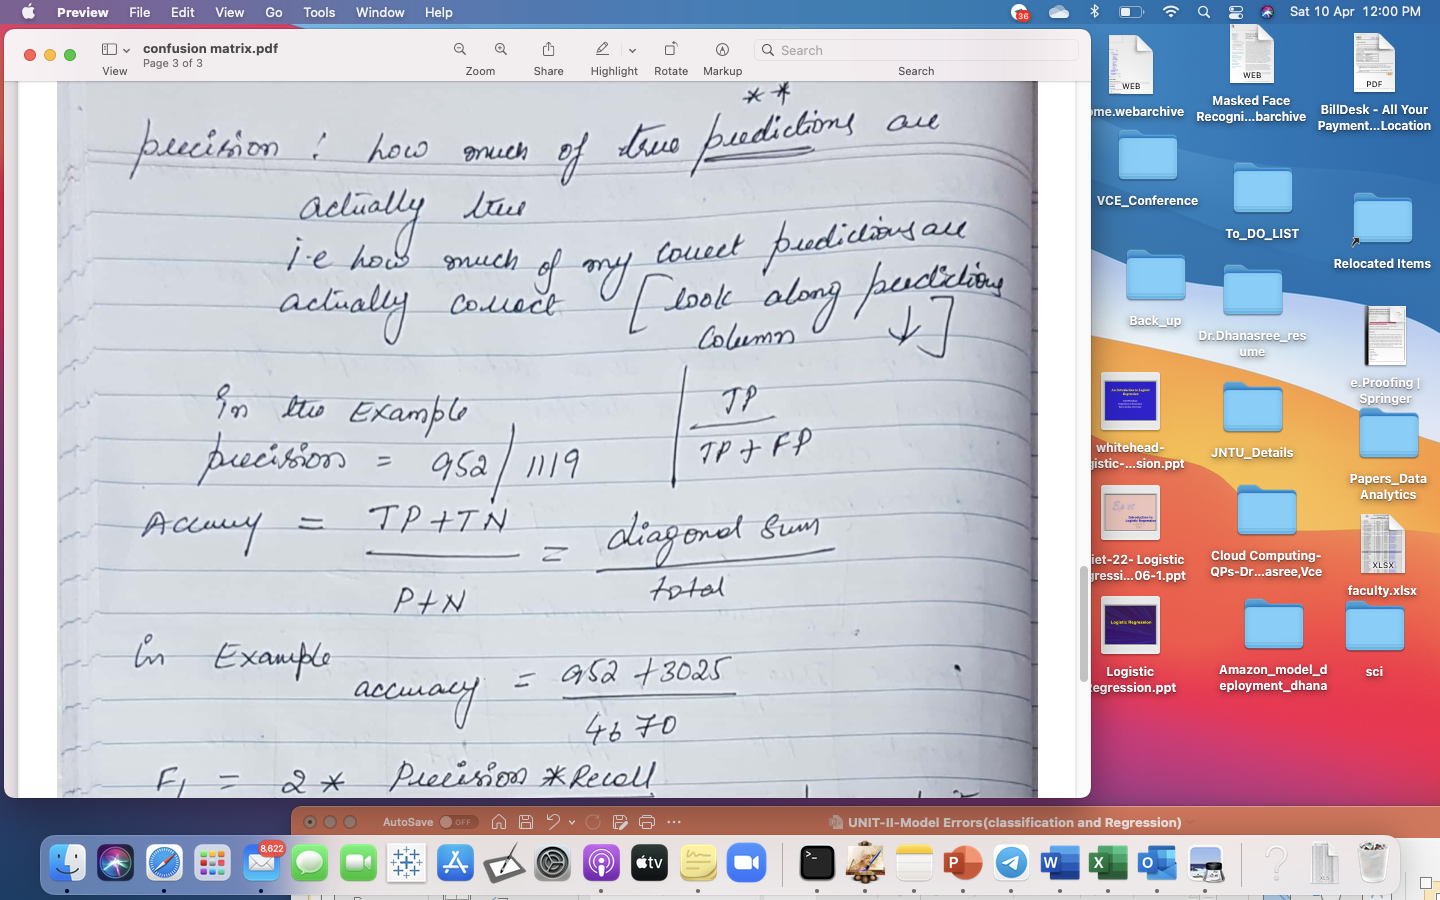 Preview File Edit View Go Tools Window Help
36
Sat 10 Apr 12:00 PM
confusion matrix.pdf
Page 3 of 3
View
Zoom
Share
Highlight
Rotate
Markup
Search
Search
**
precision : how much of true predictions are
actually true
i.e how much of my correct predictions are
actually correct [look along predictions
column ↓]
in the Example
precision = 952/1119
TP
TP + FP
Accuracy = TP+TN = diagonal sum
P+N total
in Example
accuracy = 952 + 3025
4670
F1 = 2 * Precision * Recall
WEB
ome.webarchive
WEB
Masked Face
Recogni...barchive
PDF
BillDesk - All Your
Payment...Location
VCE_Conference
To_DO_LIST
Relocated Items
Back_up
Dr.Dhanasree_res
ume
e.Proofing |
Springer
whitehead-
gistic-...sion.ppt
JNTU_Details
Papers_Data
Analytics
iet-22- Logistic
gressi...06-1.ppt
Cloud Computing-
QPs-Dr...asree,Vce
XLSX
faculty.xlsx
Logistic Regression
Logistic
egression.ppt
Amazon_model_d
eployment_dhana
sci
AutoSave OFF
UNIT-II-Model Errors(classification and Regression)
8,622
tv
P
W
X
O